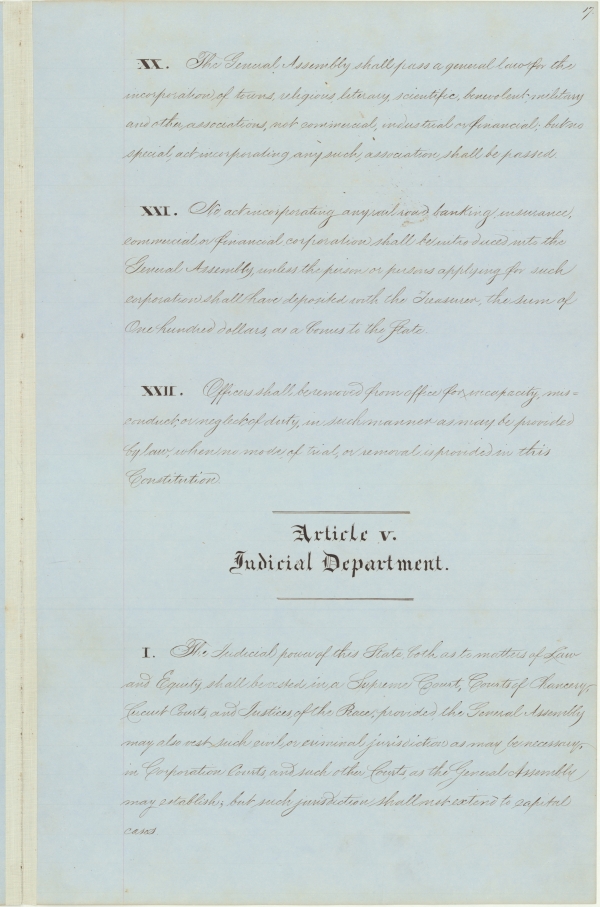 17
XX. The General Assembly shall pass a general law for the
incorporation, of towns, religious, literary, scientific, benevolent, military
and other, associations, not commercial, industrial or financial; but no
special, act incorporating any such, association, shall be passed.
XXI. No act incorporating any rail road, banking, insurance,
commercial or financial corporation, shall be introduced into the
General Assembly, unless the person or persons applying for such
corporation shall have deposited with the Treasurer, the sum of
One hundred dollars, as a bonus to the State.
XXII. Officers shall be removed from office for incapacity, mis=
conduct, or neglect of duty, in such manner as may be provided
by law, when no mode, of trial, or removal is provided in this
Constitution
Article v.
Judicial Department.
I. The Judicial power of this State, both as to matters of Law
and Equity, shall be vested in, a Supreme Court, Courts of Chancery,
Circuit Courts, and Justices, of the Peace; provided, the General Assembly
may also vest, such civil, or criminal jurisdiction as may be necessary,
in Corporation Courts, and such other Courts, as the General Assembly
may establish; but, such jurisdiction, shall not extend to capital
cases